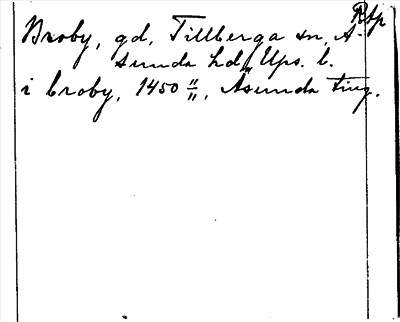 Rsp
Broby, gd, Tillberga sn, Å-
sunda hd, Ups. l.
i broby, 1450 11/11, Åsunda ting.